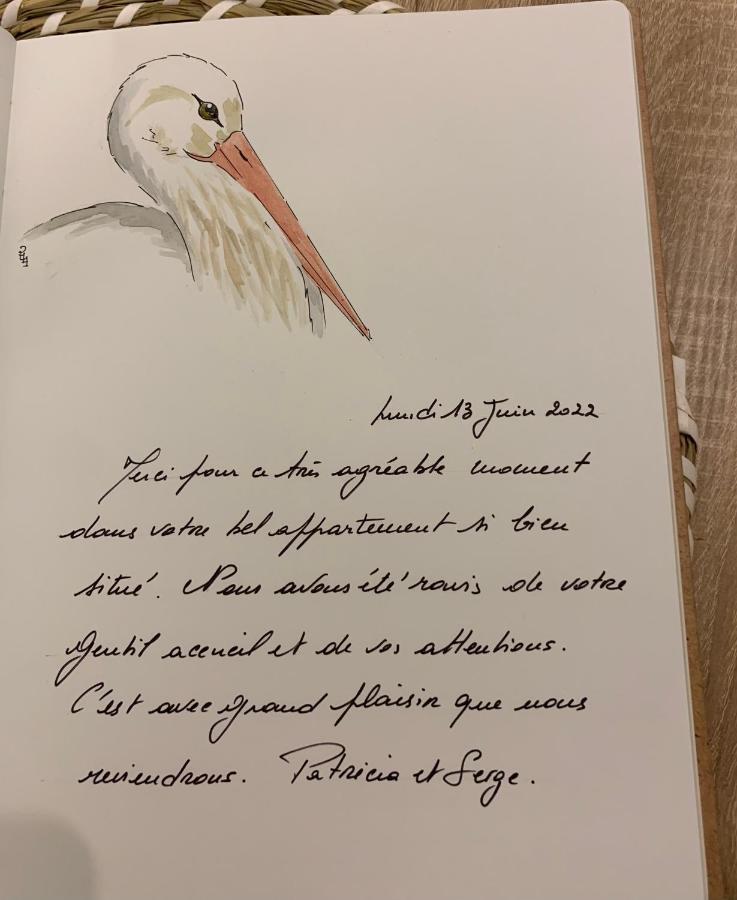 Lundi 13 Juin 2022
Merci pour ce très agréable moment
dans votre bel appartement si bien
situé. Nous avons été ravis de votre
gentil accueil et de vos attentions.
C'est avec grand plaisir que nous
reviendrons. Patricia et Serge.